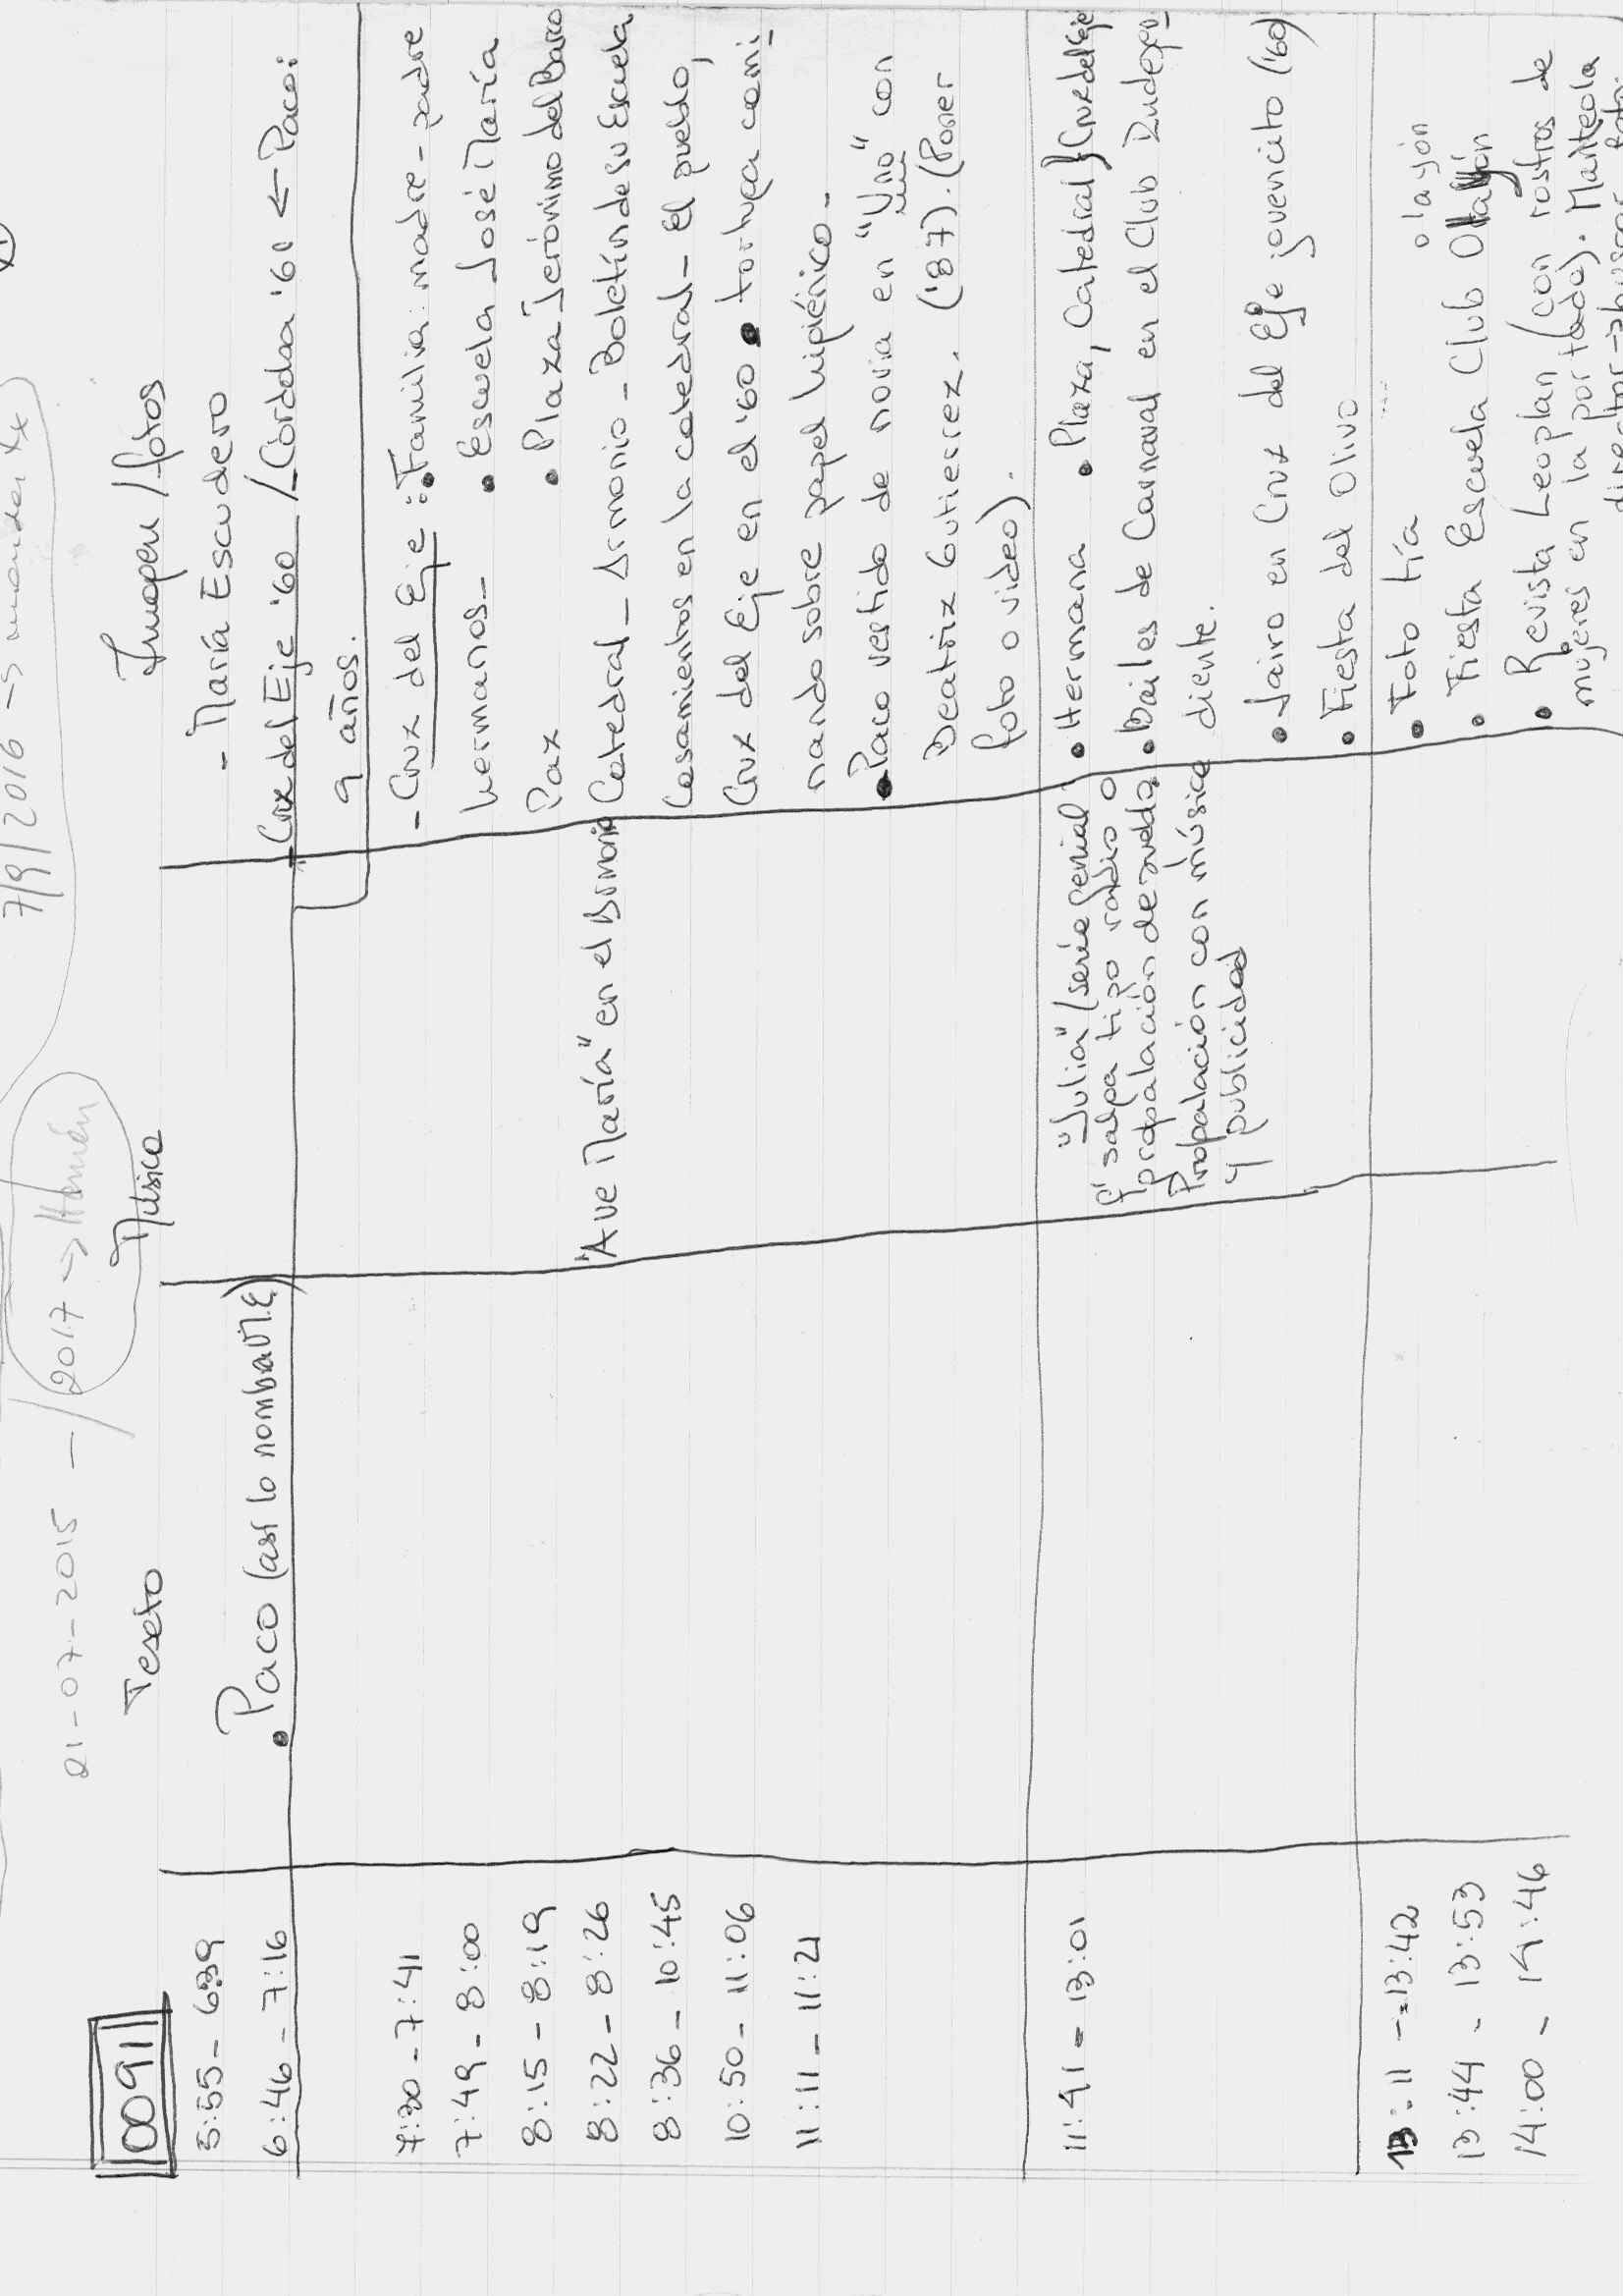 7/9/2016 → mandar
21-07-2015 – / 2017 → Hernán
0091
Texto
Música
Imagen / fotos
5:55 - 6:39
- María Escudero
6:46 - 7:16
• Paco (así lo nombra M.E)
- Cruz del Eje '60 / Córdoba '60 ← Paco:
9 años.
7:30 - 7:41
- Cruz del Eje : • Familia: madre - padre
hermanos -
7:49 - 8:00
• Escuela José María
Paz
8:15 - 8:19
• Plaza Jerónimo del Barco
8:22 - 8:26
"Ave María" en el Armonio
Catedral - Armonio - Boletín de su Escuela
8:36 - 10:45
Casamientos en la catedral - El pueblo,
10:50 - 11:06
Cruz del Eje en el '60 • tortuga cami-
nando sobre papel higiénico -
11:11 - 11:21
• Paco vestido de novia en "Uno" con
Beatriz Gutierrez. ('87). (Poner
foto o video).
11:41 - 13:01
"Julia" (serie
• Hermana • Plaza, Catedral } Cruz del Eje
salga tipo radio o
propalación de
• Bailes de Carnaval en el Club Indepen-
Propalación con música
diente.
y publicidad
• Jairo en Cruz del Eje jovencito ('60)
• Fiesta del Olivo
13:11 - 13:42
• Foto tía
olayón
13:44 - 13:53
• Fiesta Escuela Club Olayón
14:00 - 14:46
• Revista Leoplan (con rostros de
mujeres en la portada). Manteola
director → buscar